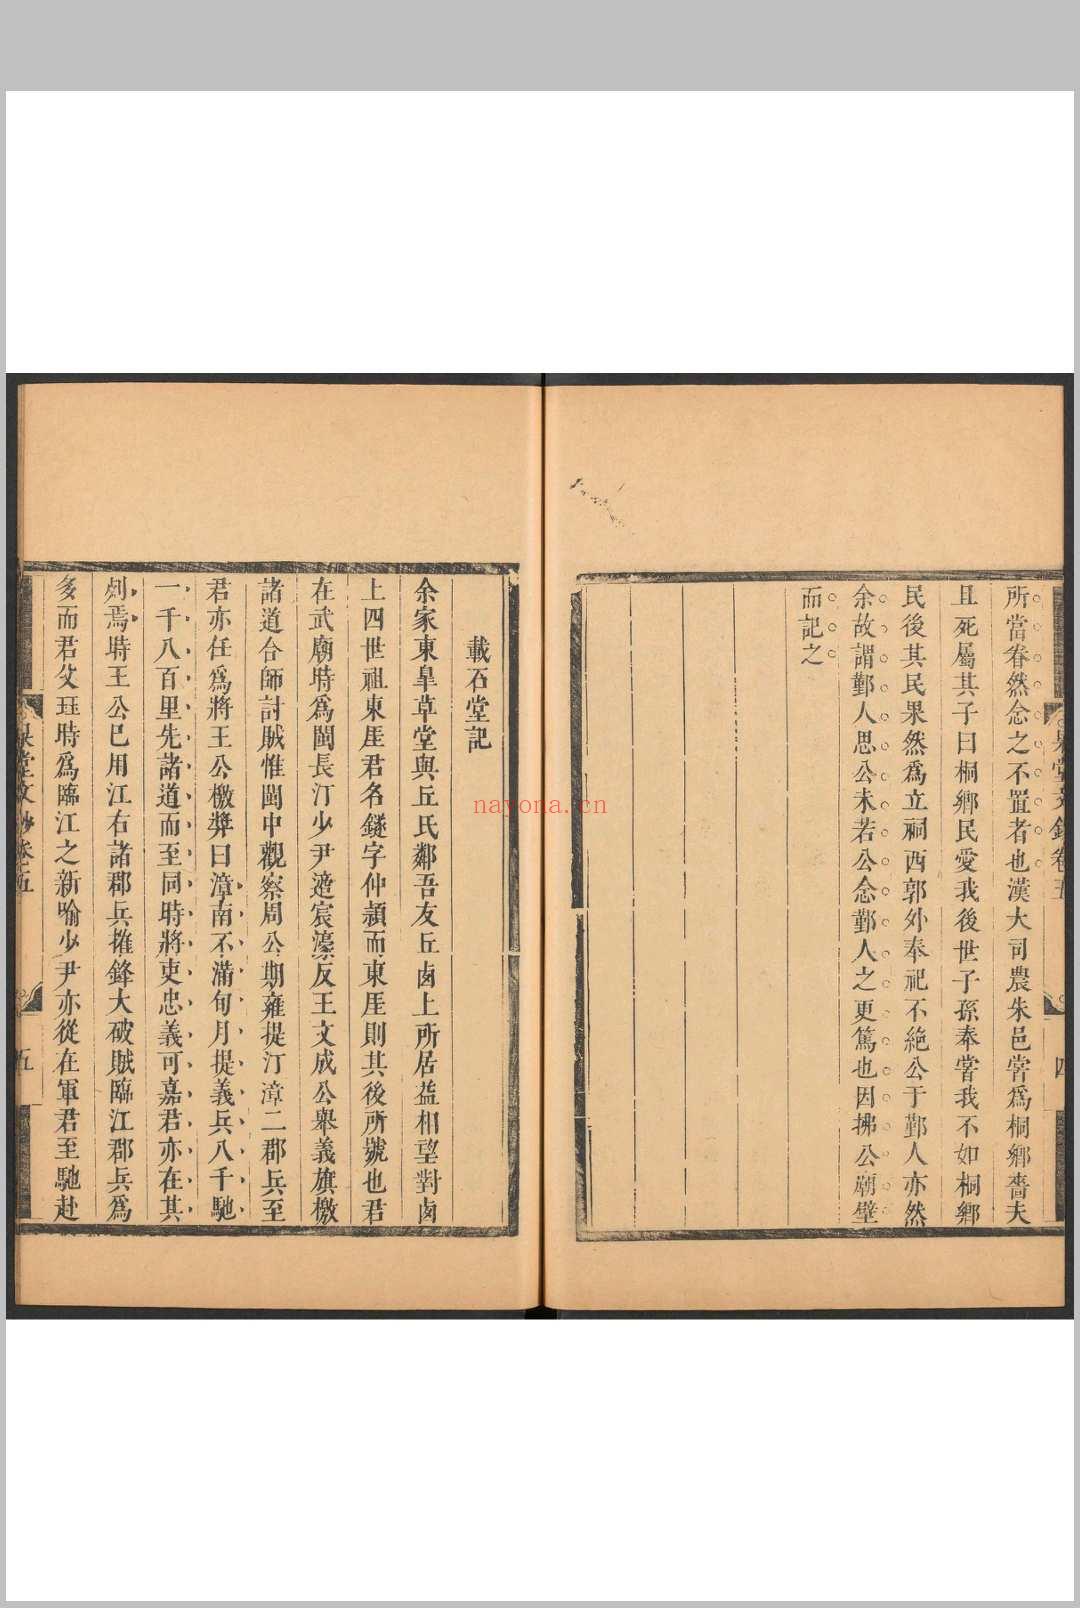 所當眷然念之不置者也漢大司農朱邑嘗爲桐鄉嗇夫
且死屬其子曰桐鄉民愛我後世子孫奉嘗我不如桐鄉
民後其民果然爲立祠西郭外奉祀不絶公于鄞人亦然
余故謂鄞人思公未若公念鄞人之更篤也因拂公廟壁
而記之
載石堂記
余家東臯草堂與丘氏鄰吾友丘鹵上所居益相望對鹵
上四世祖東厓君名鐩字仲頴而東厓則其後所號也君
在武廟時爲閩長汀少尹遊宸濠反王文成公舉義旗檄
諸道合師討賊惟閩中觀察周公期雍提汀漳二郡兵至
君亦任爲將王公檄奬曰漳南不滿旬月提義兵八千馳
一千八百里先諸道而至同時將吏忠義可嘉君亦在其
列焉時王公已用江右諸郡兵摧鋒大破賊臨江郡兵爲
多而君父珏時爲臨江之新喻少尹亦從在軍君至馳赴
杲堂文鈔卷五
五
nayona.cn